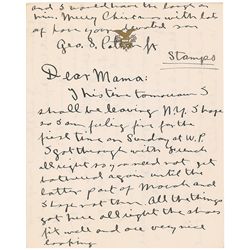 and I would have the longs on
him. Merry Chirsmas with lot
of love your devoted son
Geo. S. Patton Jr
Stamps
Dear Mama:
This time tomorrow I
shall be leaving N.Y. I hope
so I am feeling fine for the
first time on Sunday at W.P.
I got through with French
all right so you need not get
bothered again until the
latter part of March and
I hope not then. All the things
got here all right the shoes
fit well and are very nice
looking